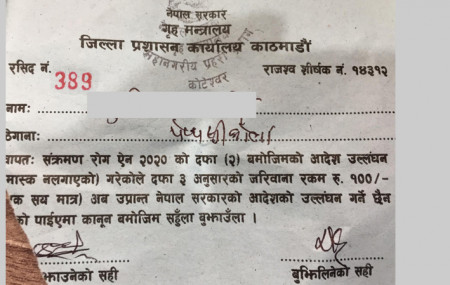 नेपाल सरकार
गृह मन्त्रालय
जिल्ला प्रशासन कार्यालय काठमाडौं
महानगरीय प्रहरी
कोटेश्वर
रसिद नं. 389
राजश्व शीर्षक नं. १४३१२
नामः
ठेगानाः
ापतः संक्रमण रोग ऐन २०२० को दफा (२) बमोजिमको आदेश उल्लंघन
मास्क नलगाएको) गरेकोले दफा ३ अनुसारको जरिवाना रकम रु. १००/-
क सय मात्र) अब उप्रान्त नेपाल सरकारको आदेशको उल्लंघन गर्ने छैन
को पाईएमा कानून बमोजिम सहुँला बुझाउँला ।
झाउनेको सही
बुझिलिनेको सही